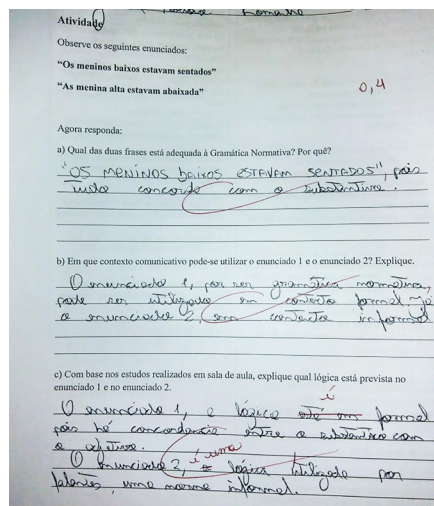 Atividade
Observe os seguintes enunciados:
“Os meninos baixos estavam sentados”
“As menina alta estavam abaixada”
0,4
Agora responda:
a) Qual das duas frases está adequada à Gramática Normativa? Por quê?
"OS MENINOS baixos ESTAVAM SENTADOS", pois
concorda com o substantivo.
b) Em que contexto comunicativo pode-se utilizar o enunciado 1 e o enunciado 2? Explique.
O enunciado 1, por ser gramática normativa,
pode ser utilizado em contexto formal. Já
o enunciado 2, em contexto informal
c) Com base nos estudos realizados em sala de aula, explique qual lógica está prevista no
enunciado 1 e no enunciado 2.
é
O enunciado 1, a lógica formal
pois há concordancia entre o substantivo com
o adjetivo.
é uma
O Enunciado 2, logica utilizada por
falantes, uma norma informal.